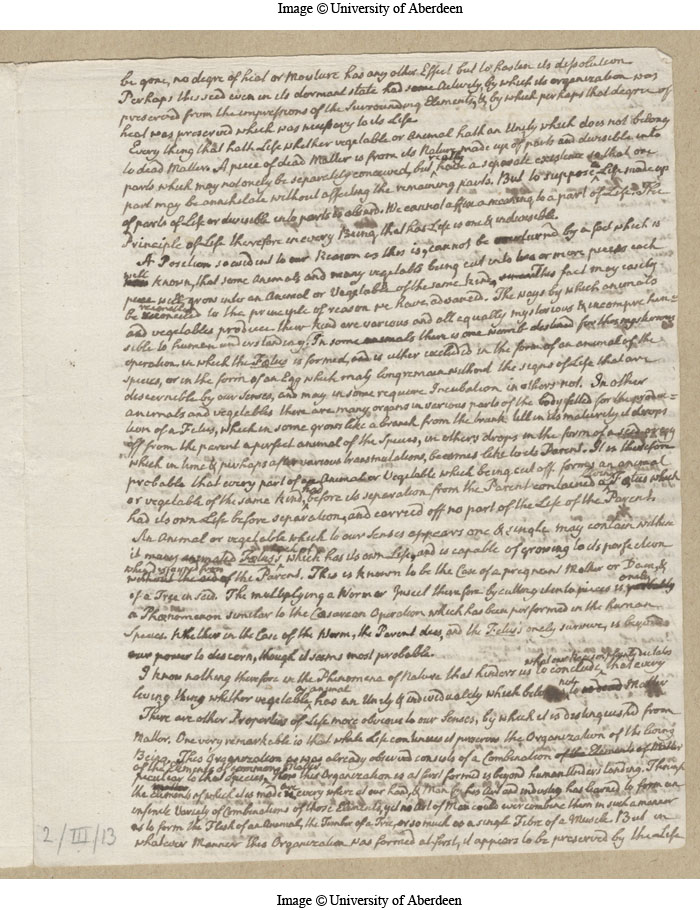 Image © University of Aberdeen
be gone, no degre of heat or Moisture has any other Effect but to hasten its dissolution
Perhaps this seed even in its dormant state had some Activity, by which its organization was
preserved from the impressions of the surrounding Elements, & by which perhaps that degree of
heat was preserved which was necessary to its Life
Every thing that hath Life whether vegetable or Animal hath an Unity which does not belong
to dead Matter. A piece of dead Matter is from its Nature made up of parts and divisible into
parts which may not onely be separately conceived, but really have a separate existence so that one
part may be annihilate without affecting the remaining parts. But to suppose a Life made up
of parts of Life or divisible into parts is absurd. We cannot affix a meaning to a part of Life. The
Principle of Life therefore in every Being that has Life is one & indivisible.
A Position so evident to our Reason as this is, cannot be overturned by a fact which is
well known, that some Animals and many vegetables being cut into two or more pieces each
piece will grow into an Animal or Vegetable of the same kind, this fact may easily
be reconciled to the principle of reason we have advanced. The ways by which animals
and vegetables produce their kind are various and all equally mysterious & incomprehen=
sible to human understanding. In some animals there is one womb destined for this mysterious
operation in which the Fœtus is formed, and is either excluded in the form of an animal of the
species, or in the form of an Egg which may long remain without the signs of Life that are
discernible by our senses, and may in some require Incubation in others not. In other
animals and vegetables there are many organs in various parts of the body fitted for the produc=
tion of a Fetus, which in some grows like a branch from the trunk till in its maturity it drops
off from the parent a perfect animal of the Species, in others drops in the form of a seed or egg
which in time & perhaps after various transmutations, becomes like to its Parent. It is therefore
probable that every part of an Animal or Vegetable which being cut off forms an animal
or vegetable of the same kind, had before its separation from the Parent contained a Fœtus which
had its own Life before separation, and carried off no part of the Life of the Parent.
An Animal or vegetable which to our Senses appears one & single may contain within
it many animated Fœtus's which has its own Life, and is capable of growing to its perfection
of the Parent. This is known to be the Case of a pregnant Mother or Dam, &
of a Tree in seed. The multiplying a Worm or Insect therefore by cutting it into pieces is onely
a Phænomenon similar to the Cæsarean Operation which has been performed in the human
Species. Whether in the Case of the Worm, the Parent dies, and the Fetus's onely survive, is beyond
our power to discern, though it seems most probable.
I know nothing therefore in the Phenomena of Nature that hinders us to conclude what our Reason dictates that every
living thing whether vegetable or animal has an Unity & individuality which belongs not to Matter
There are other Properties of Life more obvious to our Senses, by which it is distinguished from
Matter. One very remarkable is that while Life continues it preserves the Organization of the living
Being. This Organization as was already observed consists of a Combination of the Elements of Matter
of the Elements of common Matter
peculiar to the Species. How this Organization is at first formed is beyond human Understanding. Though
the Elements of which it is made are every where at our hand, & Man by his Art and industry has learned to form an
infinite Variety of Combinations of those Elements, yet no Art of Man could ever combine them in such a manner
as to form the Flesh of an Animal, the Timber of a Tree, or so much as a single Fibre of a Muscle. But in
whatever Manner this Organization was formed at first, it appears to be preserved by the Life
2/III/13
Image © University of Aberdeen